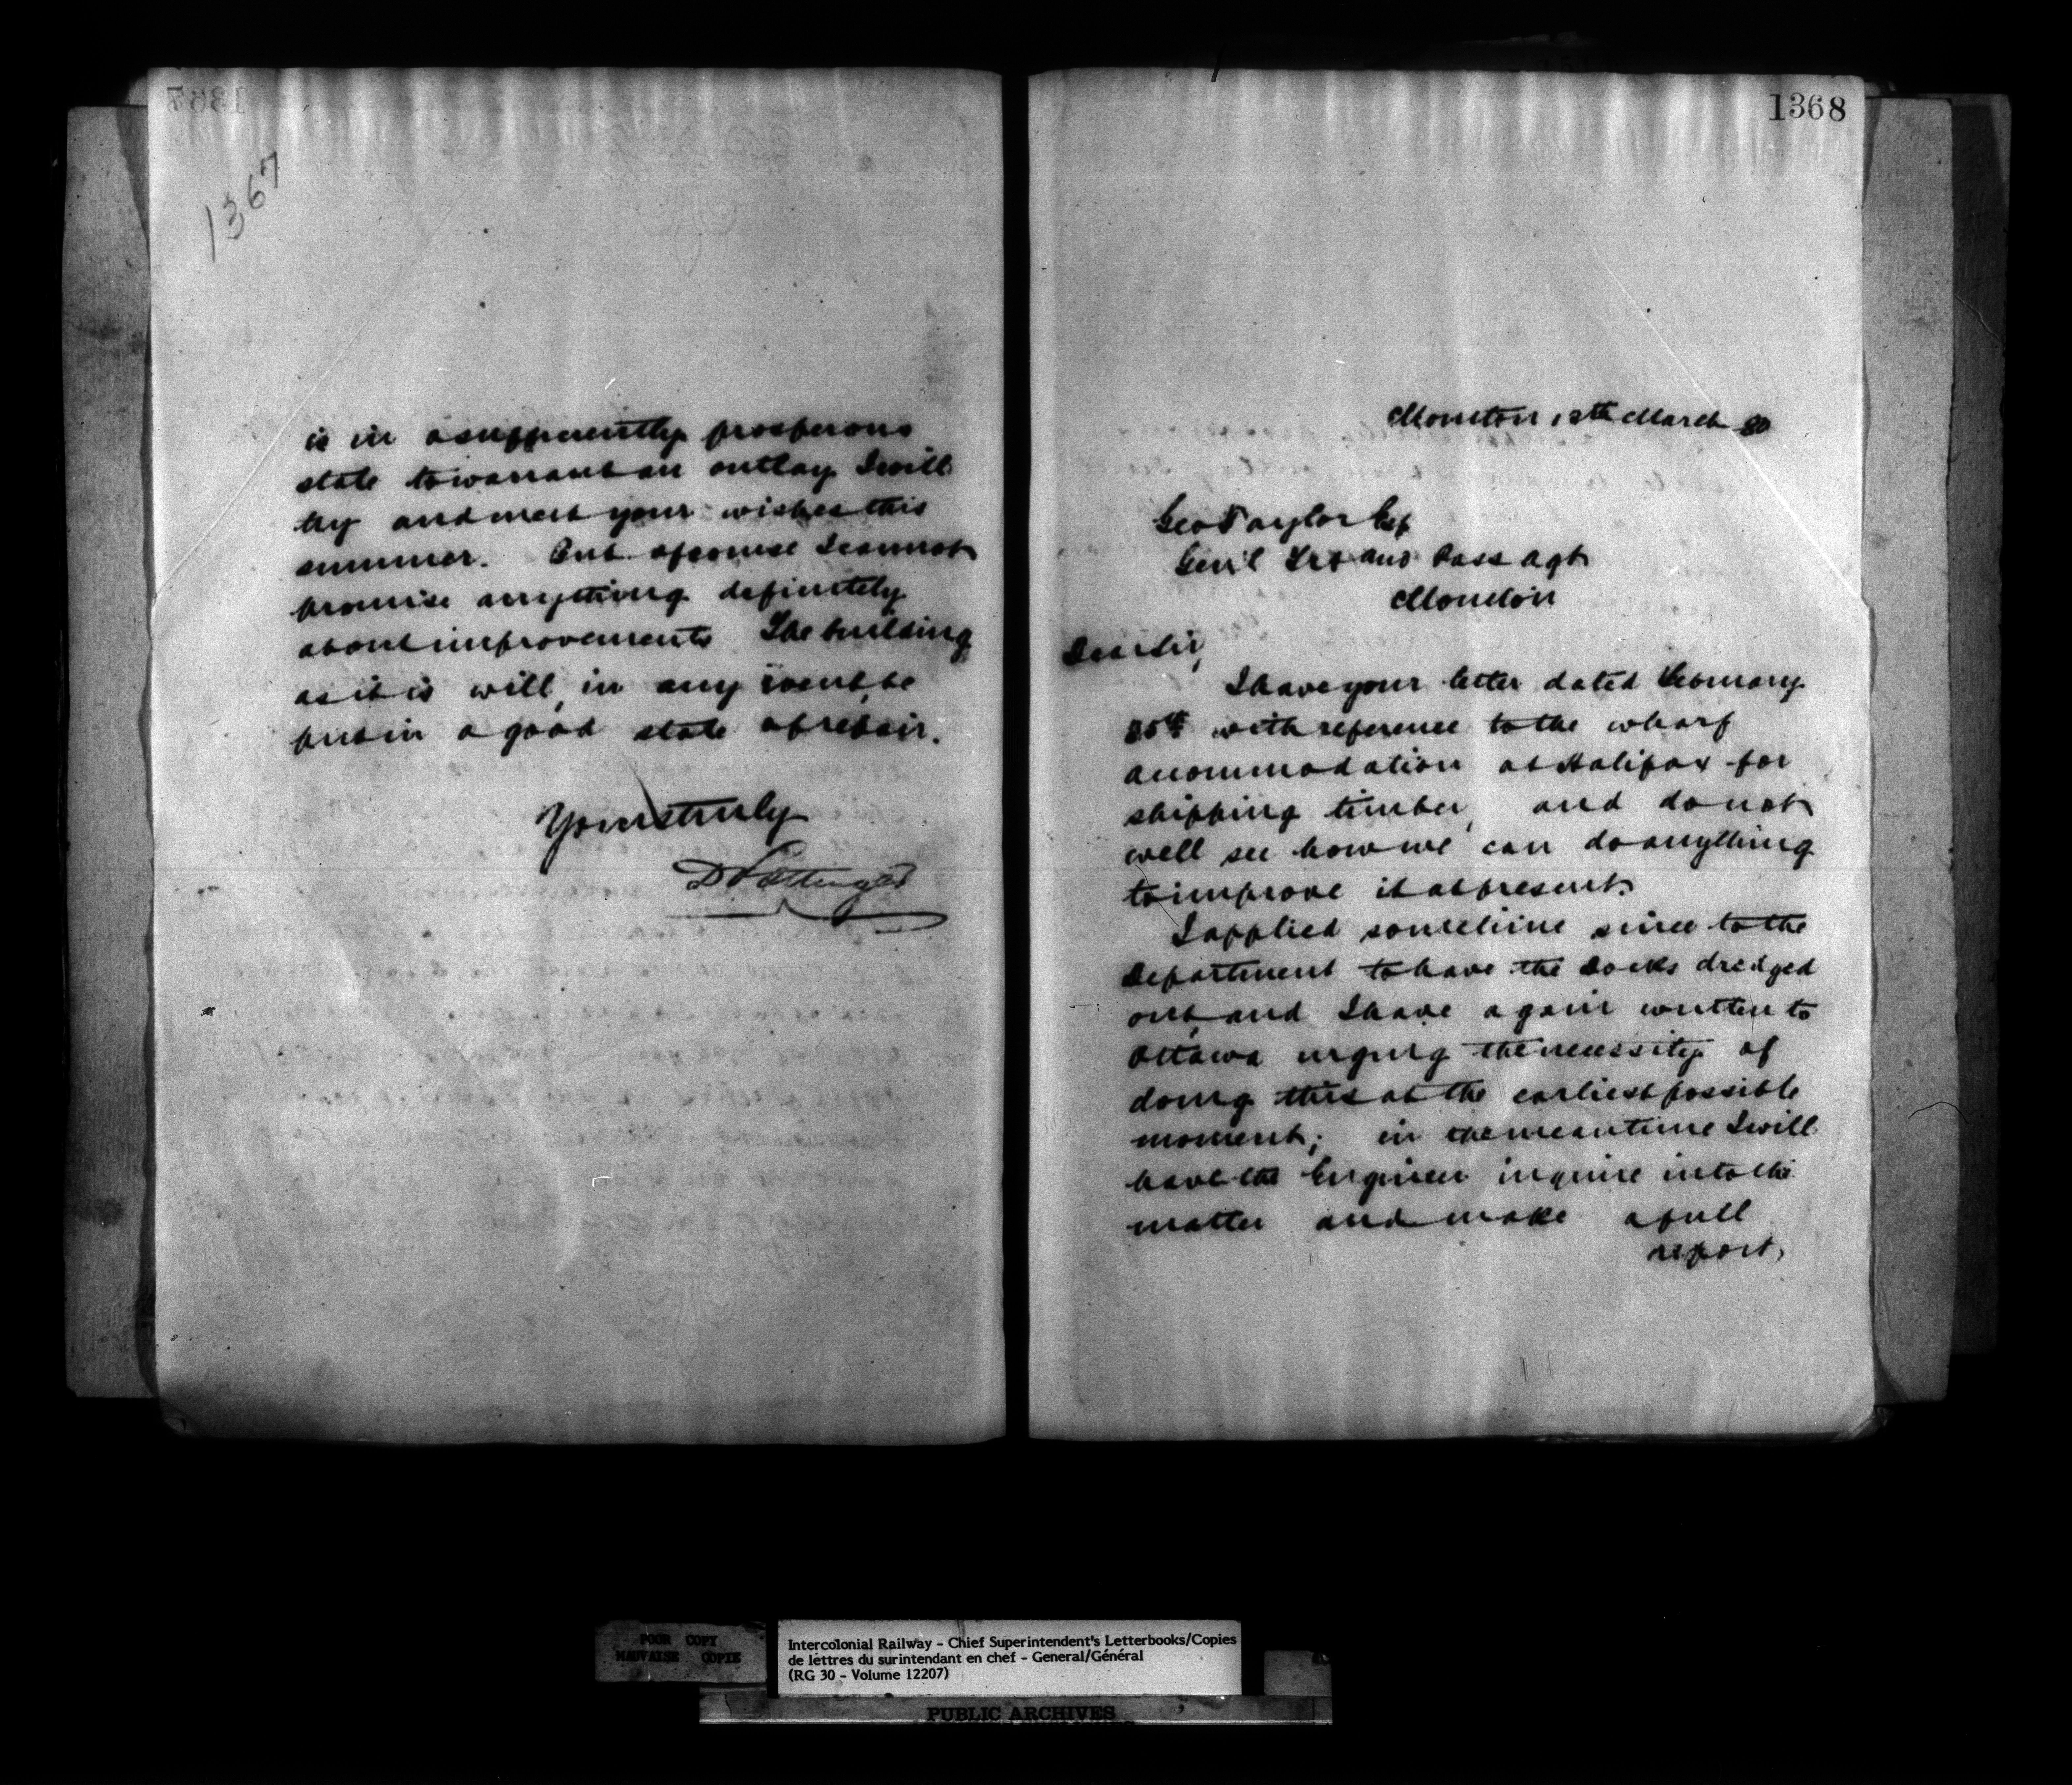 1367
is in a sufficiently prosperous
state to warrant an outlay I will
try and meet your wishes this
summer. But of course I cannot
promise anything definitely
about improvements The building
as it is will, in any event, be
put in a good state of repair.
Yours truly
D Pottinger
1368
Moncton 12th March 80
Geo Taylor Esq
Gen'l Frt and Pass Agt
Moncton
Dear Sir,
I have your letter dated February
25th with reference to the wharf
accommodation at Halifax for
shipping timber, and do not
well see how we can do anything
to improve it at present.
I applied sometime since to the
Department to have the Docks dredged
out, and I have again written to
Ottawa urging the necessity of
doing this at the earliest possible
moment; in the meantime I will
have the Engineer inquire into the
matter and make a full
report,
POOR COPY
MAUVAISE COPIE
Intercolonial Railway - Chief Superintendent's Letterbooks/Copies
de lettres du surintendant en chef - General/Général
(RG 30 - Volume 12207)
PUBLIC ARCHIVES